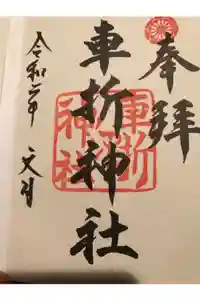 奉拝
車折神社
車折神社
令和二年 文月